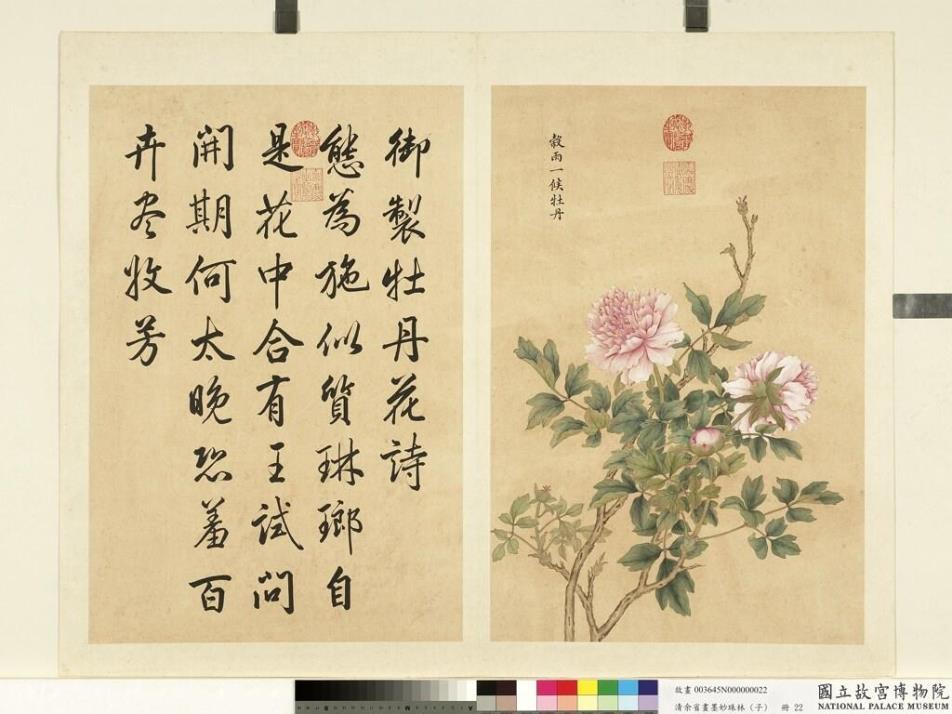 穀雨一候牡丹
御製牡丹花詩
態為施似質琳瑯自
是花中合有王試問
開期何太晚恐羞百
卉尽收芳
故畫 003645N000000022
清余省畫墨妙珠林（子） 冊 22
國立故宮博物院
NATIONAL PALACE MUSEUM